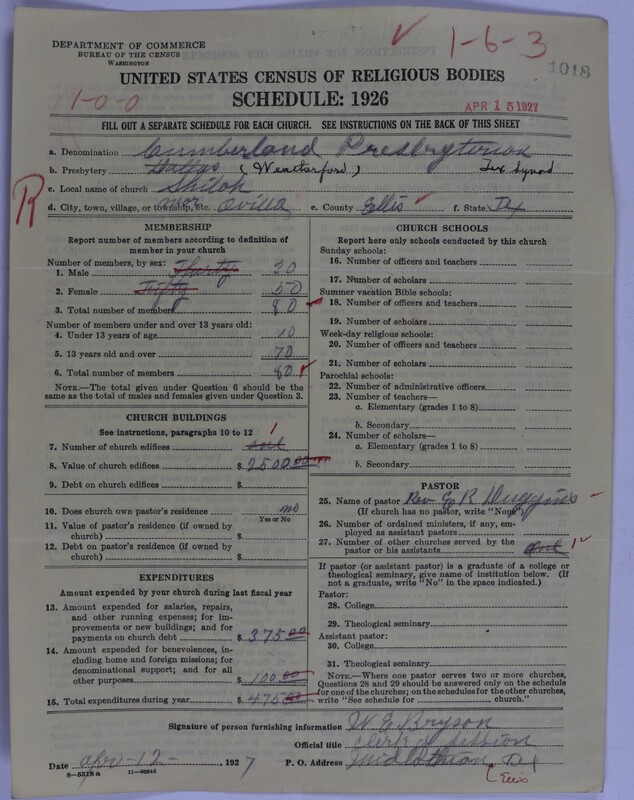 DEPARTMENT OF COMMERCE
BUREAU OF THE CENSUS
WASHINGTON
1-6-3
1018
UNITED STATES CENSUS OF RELIGIOUS BODIES
1-0-0
SCHEDULE: 1926
APR 15 1927
FILL OUT A SEPARATE SCHEDULE FOR EACH CHURCH. SEE INSTRUCTIONS ON THE BACK OF THIS SHEET
a. Denomination Cumberland Presbyterian
b. Presbytery Dallas (Weatherford) Tex Synod
c. Local name of church Shiloh
R
d. City, town, village, or township, etc. near Ovilla e. County Ellis f. State Tex
MEMBERSHIP
Report number of members according to definition of
member in your church
Number of members, by sex:
1. Male Thirty 30
2. Female Fifty 50
3. Total number of members 80
Number of members under and over 13 years old:
4. Under 13 years of age 10
5. 13 years old and over 70
6. Total number of members 80
NOTE.—The total given under Question 6 should be
same as the total of males and females given under Question 3.
CHURCH BUILDINGS
See instructions, paragraphs 10 to 12
7. Number of church edifices one 1
8. Value of church edifices $ 2500.00
9. Debt on church edifices $
10. Does church own pastor's residence? no
Yes or No
11. Value of pastor's residence (if owned by
church) $
12. Debt on pastor's residence (if owned by
church) $
EXPENDITURES
Amount expended by your church during last fiscal year
13. Amount expended for salaries, repairs,
and other running expenses; for im-
provements or new buildings; and for
payments on church debt $ 375.00
14. Amount expended for benevolences,
including home and foreign missions; for
denominational support; and for all
other purposes $ 100.00
15. Total expenditures during year $ 475.00
CHURCH SCHOOLS
Report here only schools conducted by this church
Sunday schools:
16. Number of officers and teachers
17. Number of scholars
Summer vacation Bible schools:
18. Number of officers and teachers
19. Number of scholars
Week-day religious schools:
20. Number of officers and teachers
21. Number of scholars
Parochial schools:
22. Number of administrative officers
23. Number of teachers—
a. Elementary (grades 1 to 8)
b. Secondary
24. Number of scholars—
a. Elementary (grades 1 to 8)
b. Secondary
PASTOR
25. Name of pastor Rev. R Duggins
(If church has no pastor, write "None")
26. Number of ordained ministers, if any, em-
ployed as assistant pastors
27. Number of other churches served by the
pastor or his assistants one 1
If pastor (or assistant pastor) is a graduate of a college or
theological seminary, give name of institution below. (If
not a graduate, write "No" in the space indicated.)
Pastor:
28. College
29. Theological seminary
Assistant pastor:
30. College
31. Theological seminary
NOTE.—Where one pastor serves two or more churches,
Questions 28 and 29 should be answered only on the schedule
for one of the churches; on the schedules for the other churches,
write "See schedule for church."
Signature of person furnishing information W E Bryson
Official title Clerk of Session
Date Apr-12- 1927 P. O. Address Midlothian Tex
8-5518a
Ellis